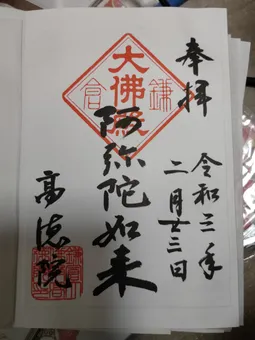 奉拝
令和三年
二月廿三日
鎌倉
大佛殿
阿弥陀如来
高徳院